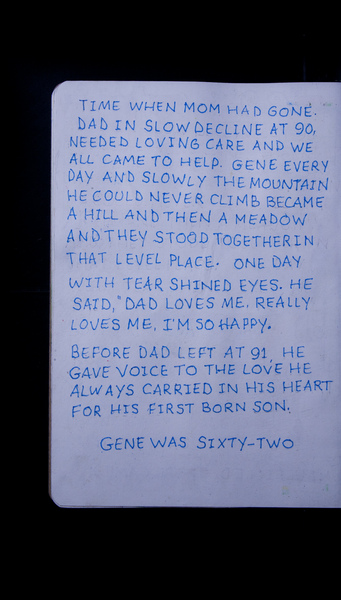 TIME WHEN MOM HAD GONE.
DAD IN SLOW DECLINE AT 90,
NEEDED LOVING CARE AND WE
ALL CAME TO HELP. GENE EVERY
DAY AND SLOWLY THE MOUNTAIN
HE COULD NEVER CLIMB BECAME
A HILL AND THEN A MEADOW
AND THEY STOOD TOGETHER IN
THAT LEVEL PLACE. ONE DAY
WITH TEAR SHINED EYES. HE
SAID, "DAD LOVES ME, REALLY
LOVES ME, I'M SO HAPPY.
BEFORE DAD LEFT AT 91, HE
GAVE VOICE TO THE LOVE HE
ALWAYS CARRIED IN HIS HEART
FOR HIS FIRST BORN SON.
GENE WAS SIXTY-TWO